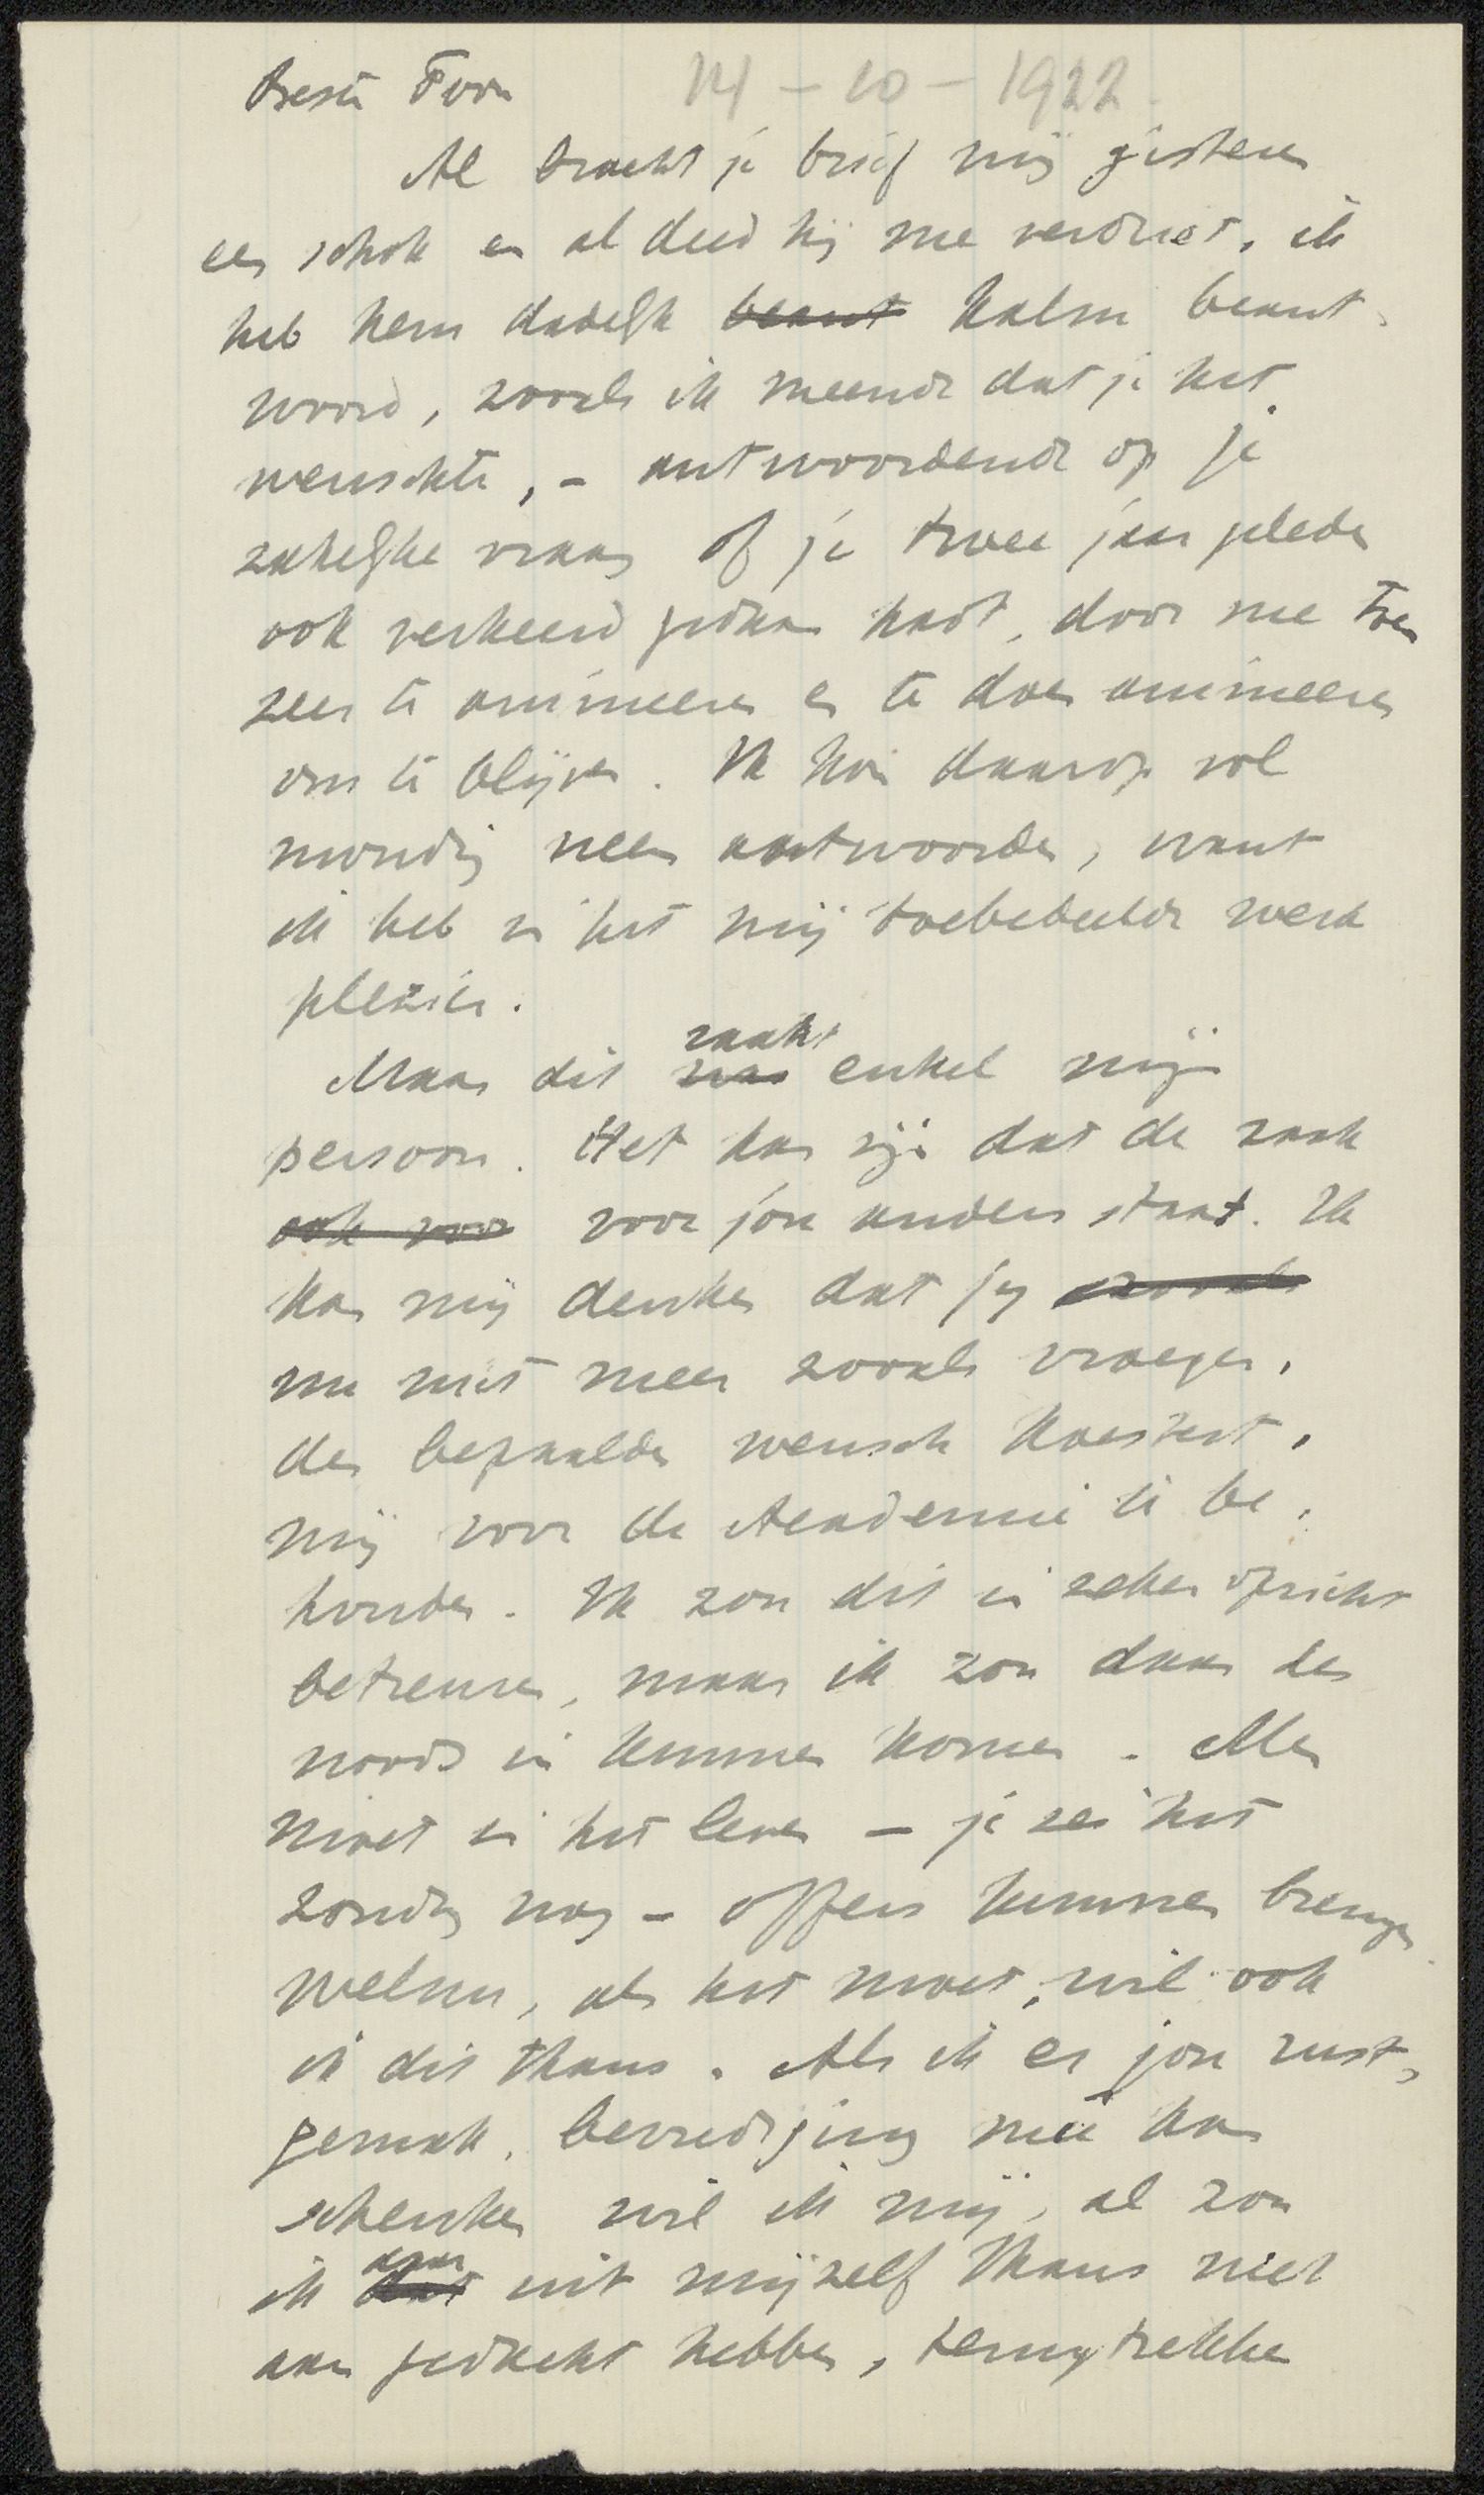 Beste Toon 14-10-1922.
Al bracht je brief mij gisteren
een schok en al deed hij me verdriet, ik
heb hem dadelijk beant kalm beant-
woord, zooals ik meende dat je het
wenschte, - antwoordende op je
zakelijke vraag of je twee jaar geleden
ook verkeerd gedaan hadt, door me toen
zeer te animeeren en te doen animeeren
om te blijven. Ik kon daarop vol
mondig neen antwoorden, want
ik heb in het mij toebedeelde werk
plezier.
Maar dit was raakt enkel mijn
persoon. Het kan zijn dat de zaak
ook voor voor jou anders staat. Ik
kan mij denken dat jij zooals
nu niet meer zooals vroeger,
den bepaalden wensch koestert,
mij voor de Academie te be-
houden. Ik zou dit in zeker opzicht
betreuren, maar ik zou daar des
noods in kunnen komen. Men
moet in het leven - je zei het
zondag nog - offers kunnen brengen
welnu, als het moet, wil ook
ik dit thans. Als ik er jou rust,
gemak, bevrediging mee kan
schenken wil ik mij, al zou
ik dat daar uit mijzelf thans niet
aan gedacht hebben, terugtrekken